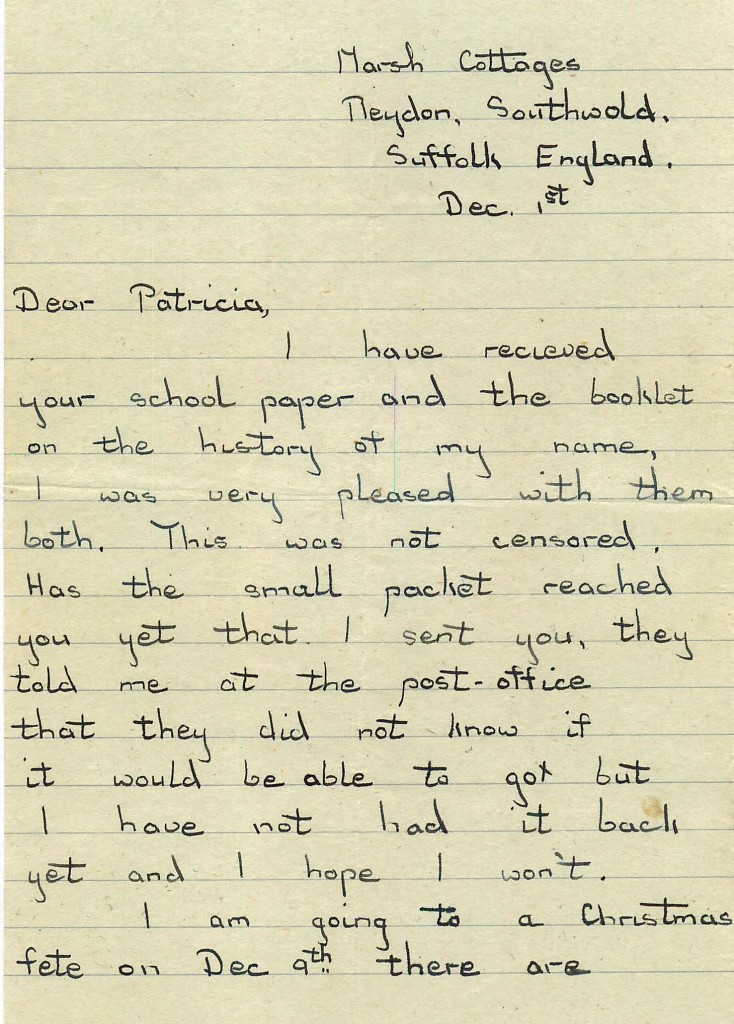 Marsh Cottages
Reydon, Southwold.
Suffolk England.
Dec. 1st
Dear Patricia,
I have recieved
your school paper and the booklet
on the history of my name,
I was very pleased with them
both. This was not censored.
Has the small packet reached
you yet that I sent you, they
told me at the post-office
that they did not know if
it would be able to got but
I have not had it back
yet and I hope I won't.
I am going to a Christmas
fete on Dec 9th there are